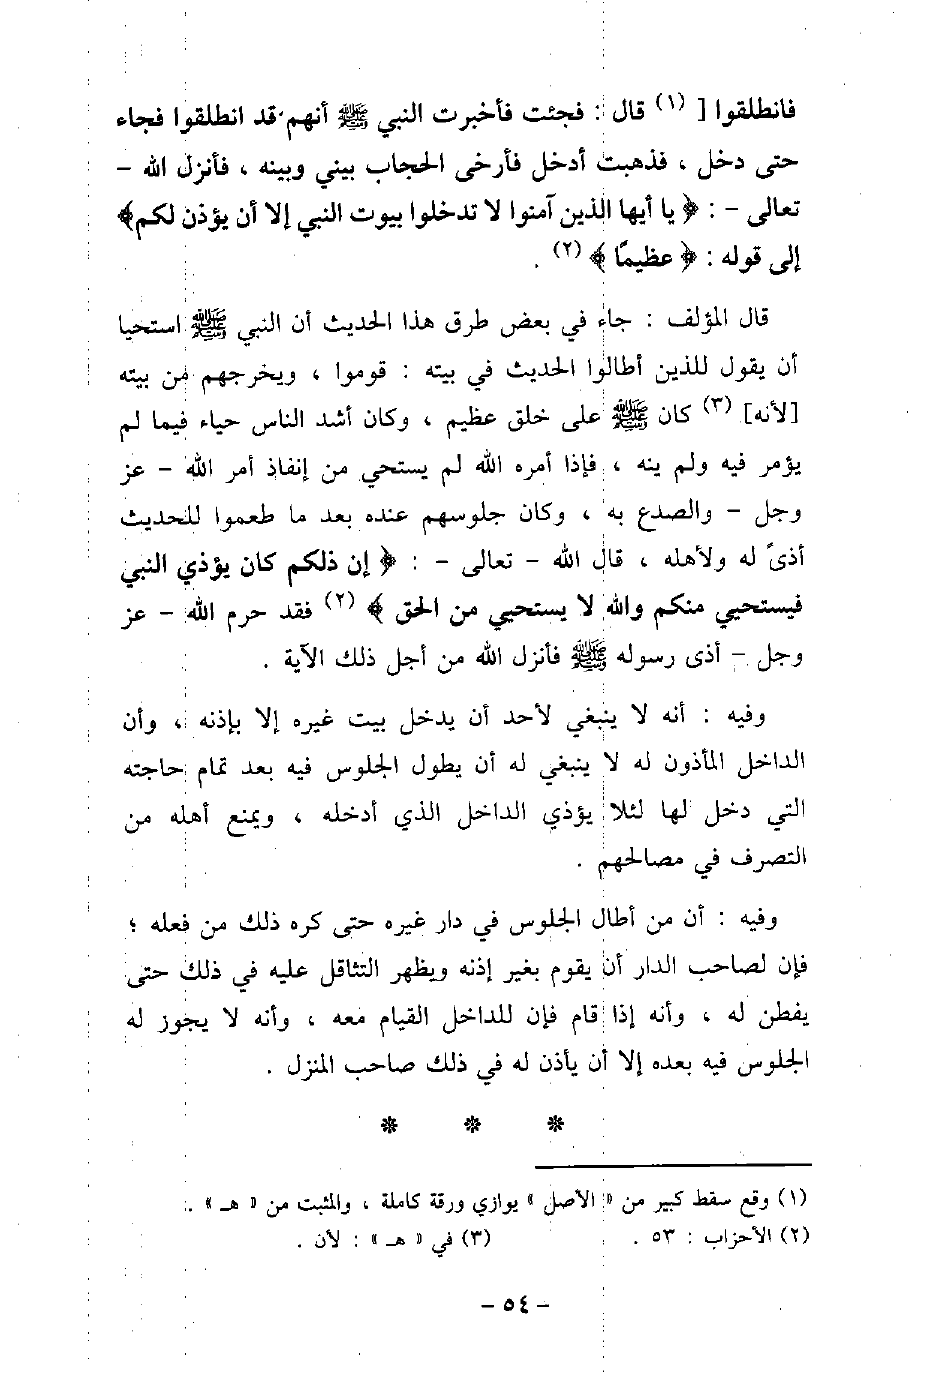 فانطلقوا [ (١) قال : فجئت فأخبرت النبي ﷺ أنهم قد انطلقوا فجاء
حتى دخل ، فذهبت أدخل فأرخى الحجاب بيني وبينه ، فأنزل الله –
تعالى – : ﴿ يا أيها الذين آمنوا لا تدخلوا بيوت النبي إلا أن يؤذن لكم﴾
إلى قوله : ﴿ عظيمًا ﴾ (٢) .
قال المؤلف : جاء في بعض طرق هذا الحديث أن النبي ﷺ استحيا
أن يقول للذين أطالوا الحديث في بيته : قوموا ، ويخرجهم من بيته
[لأنه] (٣) كان ﷺ على خلق عظيم ، وكان أشد الناس حياء فيما لم
يؤمر فيه ولم ينه ، فإذا أمره الله لم يستحي من إنفاذ أمر الله – عز
وجل – والصدع به ، وكان جلوسهم عنده بعد ما طعموا للحديث
أذىً له ولأهله ، قال الله – تعالى – : ﴿ إن ذلكم كان يؤذي النبي
فيستحيي منكم والله لا يستحيي من الحق ﴾ (٢) فقد حرم الله – عز
وجل – أذى رسوله ﷺ فأنزل الله من أجل ذلك الآية .
وفيه : أنه لا ينبغي لأحد أن يدخل بيت غيره إلا بإذنه ، وأن
الداخل المأذون له لا ينبغي له أن يطول الجلوس فيه بعد تمام حاجته
التي دخل لها لئلا يؤذي الداخل الذي أدخله ، ويمنع أهله من
التصرف في مصالحهم .
وفيه : أن من أطال الجلوس في دار غيره حتى كره ذلك من فعله ؛
فإن لصاحب الدار أن يقوم بغير إذنه ويظهر التثاقل عليه في ذلك حتى
يفطن له ، وأنه إذا قام فإن للداخل القيام معه ، وأنه لا يجوز له
الجلوس فيه بعده إلا أن يأذن له في ذلك صاحب المنزل .
* * *
(١) وقع سقط كبير من « الأصل » يوازي ورقة كاملة ، والمثبت من « هـ » .
(٢) الأحزاب : ٥٣ . (٣) في « هـ » : لأن .
– ٥٤ –